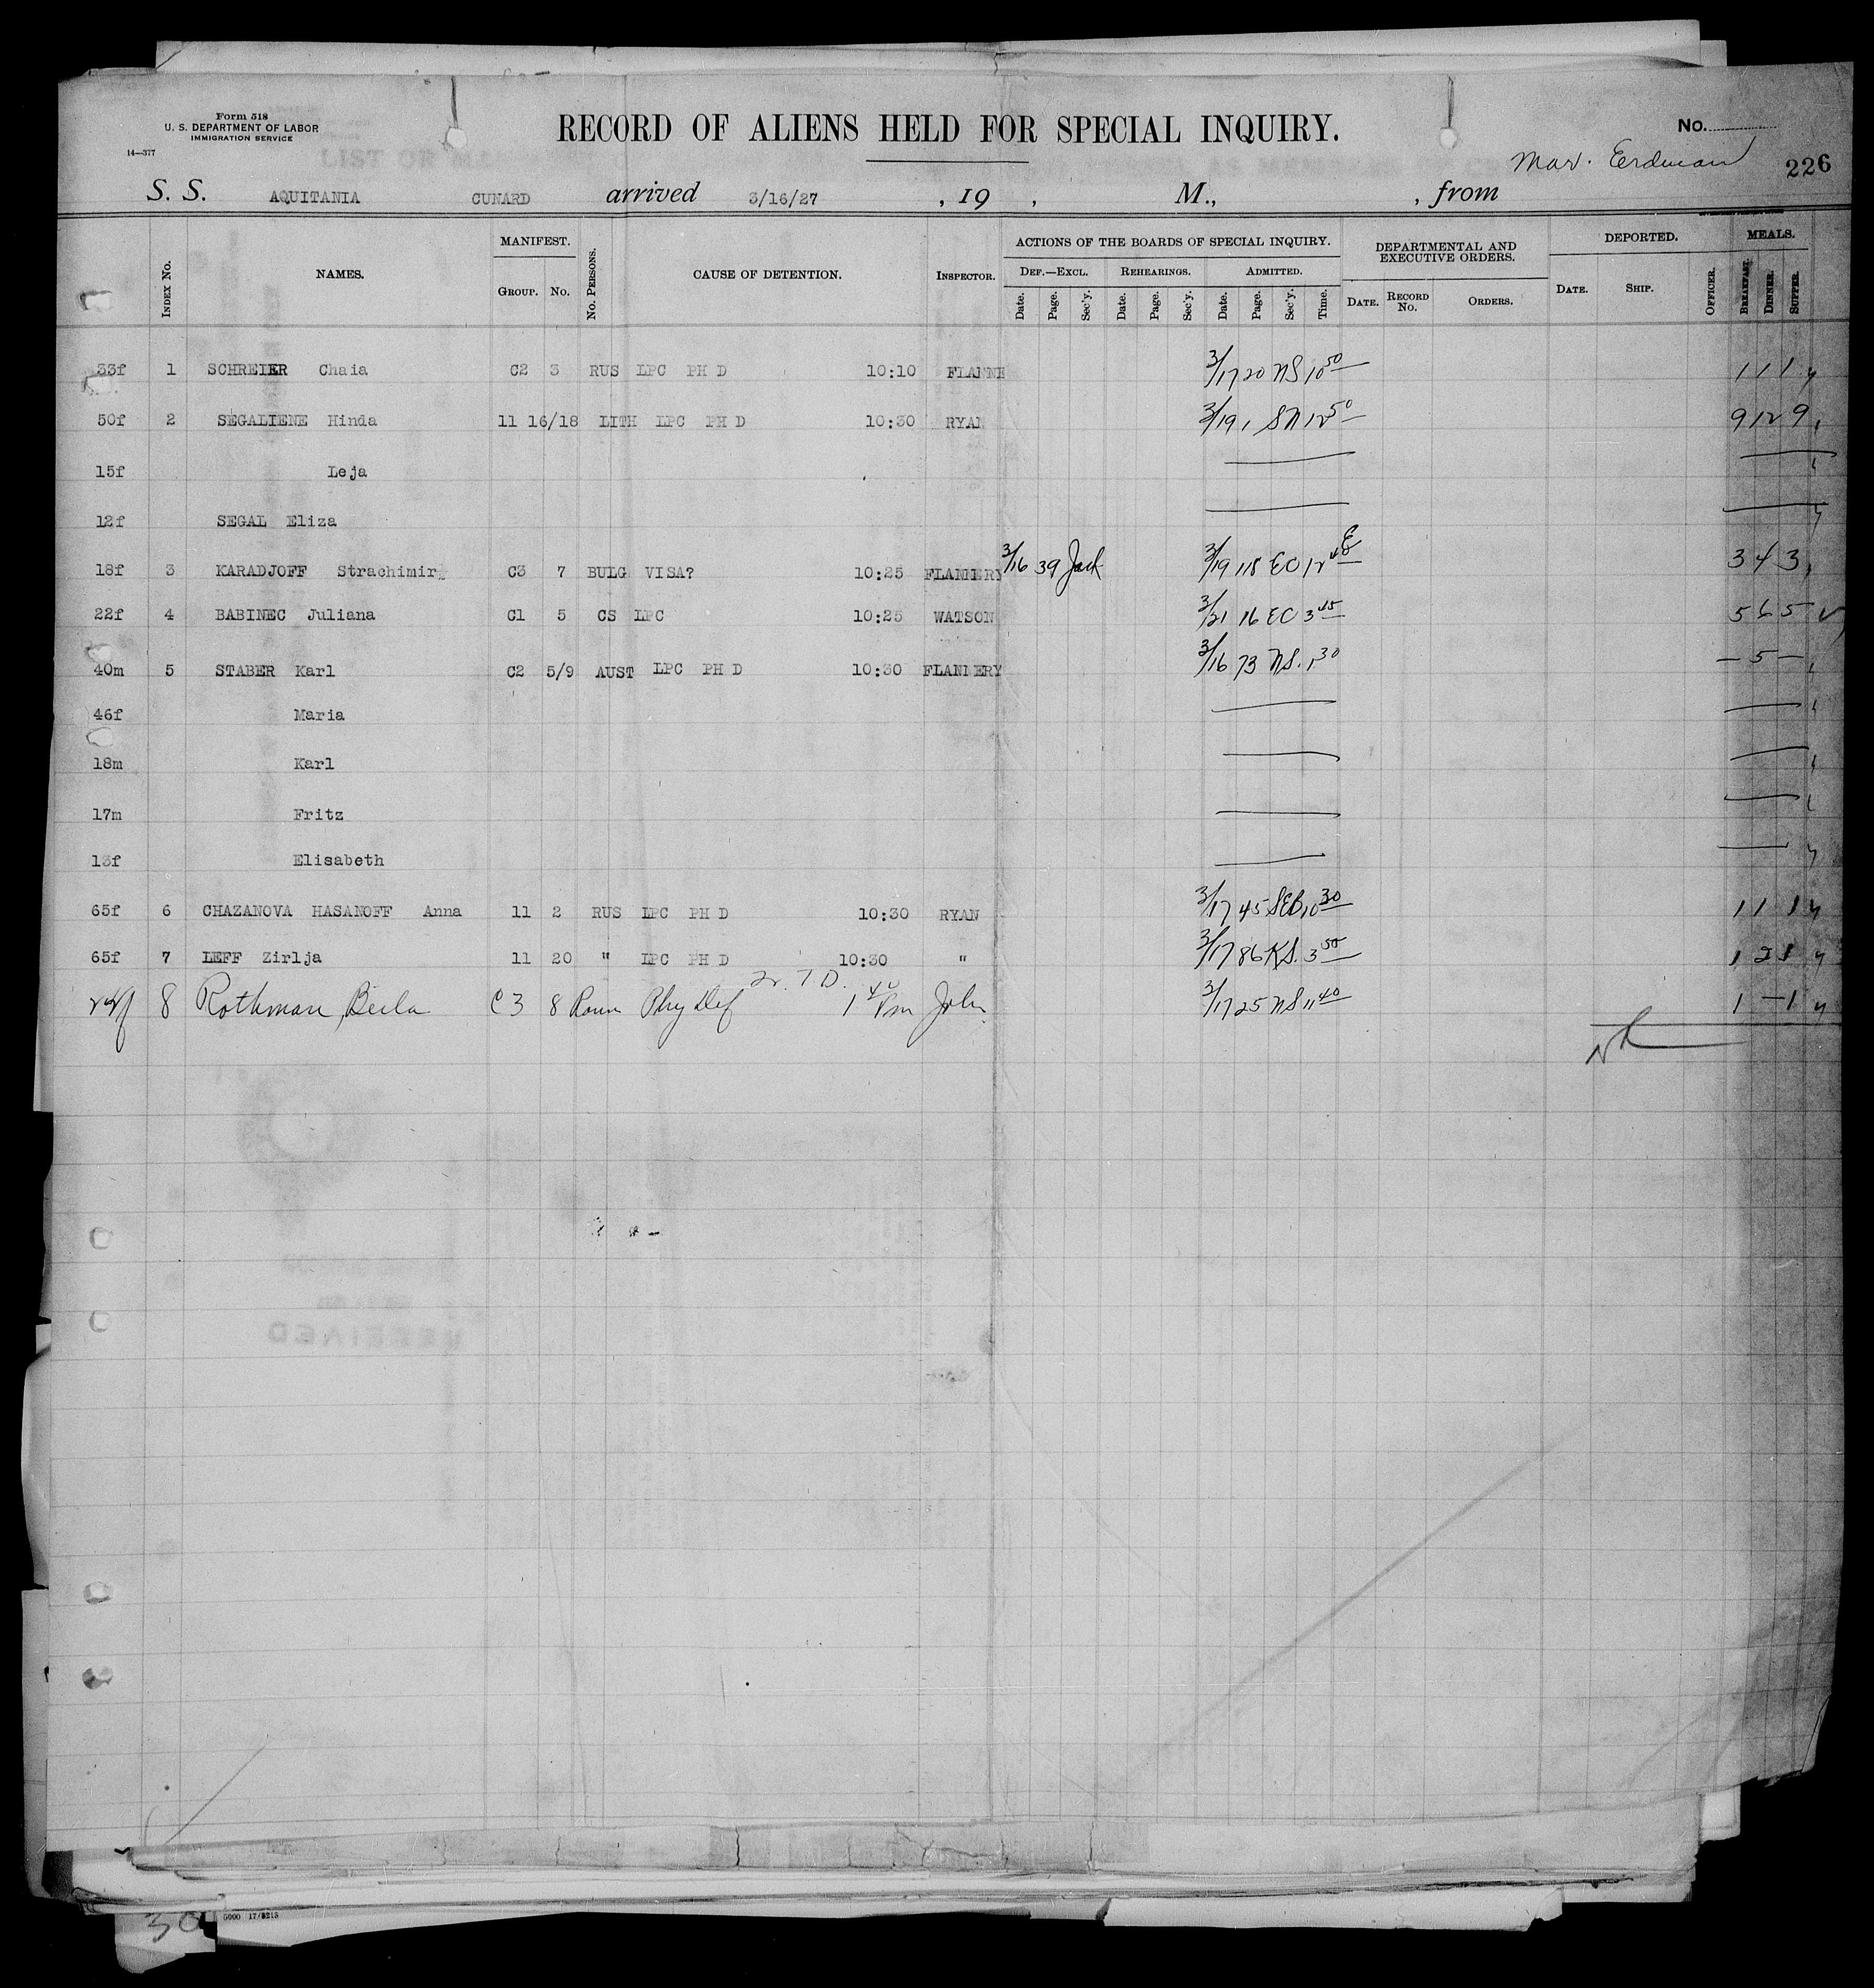 Form 518
U. S. DEPARTMENT OF LABOR
IMMIGRATION SERVICE
14—377
RECORD OF ALIENS HELD FOR SPECIAL INQUIRY.
No.
Mar. Eerdman
226
S. S. AQUITANIA CUNARD arrived 3/16/27 , 19 , M., , from
INDEX No. NAMES. MANIFEST. GROUP. No. No. PERSONS. CAUSE OF DETENTION. INSPECTOR.
ACTIONS OF THE BOARDS OF SPECIAL INQUIRY.
DEF.—EXCL. Date. Page. Sec'y. REHEARINGS. Date. Page. Sec'y. ADMITTED. Date. Page. Sec'y. Time.
DEPARTMENTAL AND EXECUTIVE ORDERS. DATE. RECORD No. ORDERS.
DEPORTED. DATE. SHIP. OFFICER.
MEALS. BREAKFAST. DINNER. SUPPER.
33f 1 SCHREIER Chaia C2 3 RUS LPC PH D 10:10 FLANNE 3/17 20 NS 10 50 1 1 1
50f 2 SEGALIENE Hinda 11 16/18 LITH LPC PH D 10:30 RYAN 3/19 1 SN 12 50 9 12 9
15f Leja
12f SEGAL Eliza
18f 3 KARADJOFF Strachimir C3 7 BULG VISA? 10:25 FLANNERY 3/16 39 Jack 3/19 118 EC 12 40 3 4 3
22f 4 BABINEC Juliana C1 5 CS LPC 10:25 WATSON 3/21 16 EC 3 45 5 6 5
40m 5 STABER Karl C2 5/9 AUST LPC PH D 10:30 FLANNERY 3/16 73 NS. 1 30 — 5 —
46f Maria
18m Karl
17m Fritz
13f Elisabeth
65f 6 CHAZANOVA HASANOFF Anna 11 2 RUS LPC PH D 10:30 RYAN 3/17 45 SEB 10 30 1 1 1
65f 7 LEFF Zirlja 11 20 " LPC PH D 10:30 " 3/17 86 KS. 3 50 1 2 1
24f 8 Rothman, Beila C3 8 Roum Phy Def 1 40 Pm John 3/17 25 NS 11 40 1 — 1
RECEIVED
30
G000 17/8213